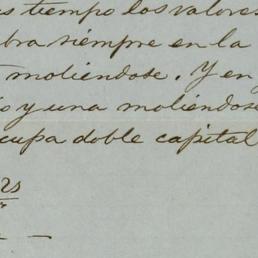 s tiempo los valores
bra siempre en la
moliendose. Y en
o y una moliendose
cupa doble capital
rs